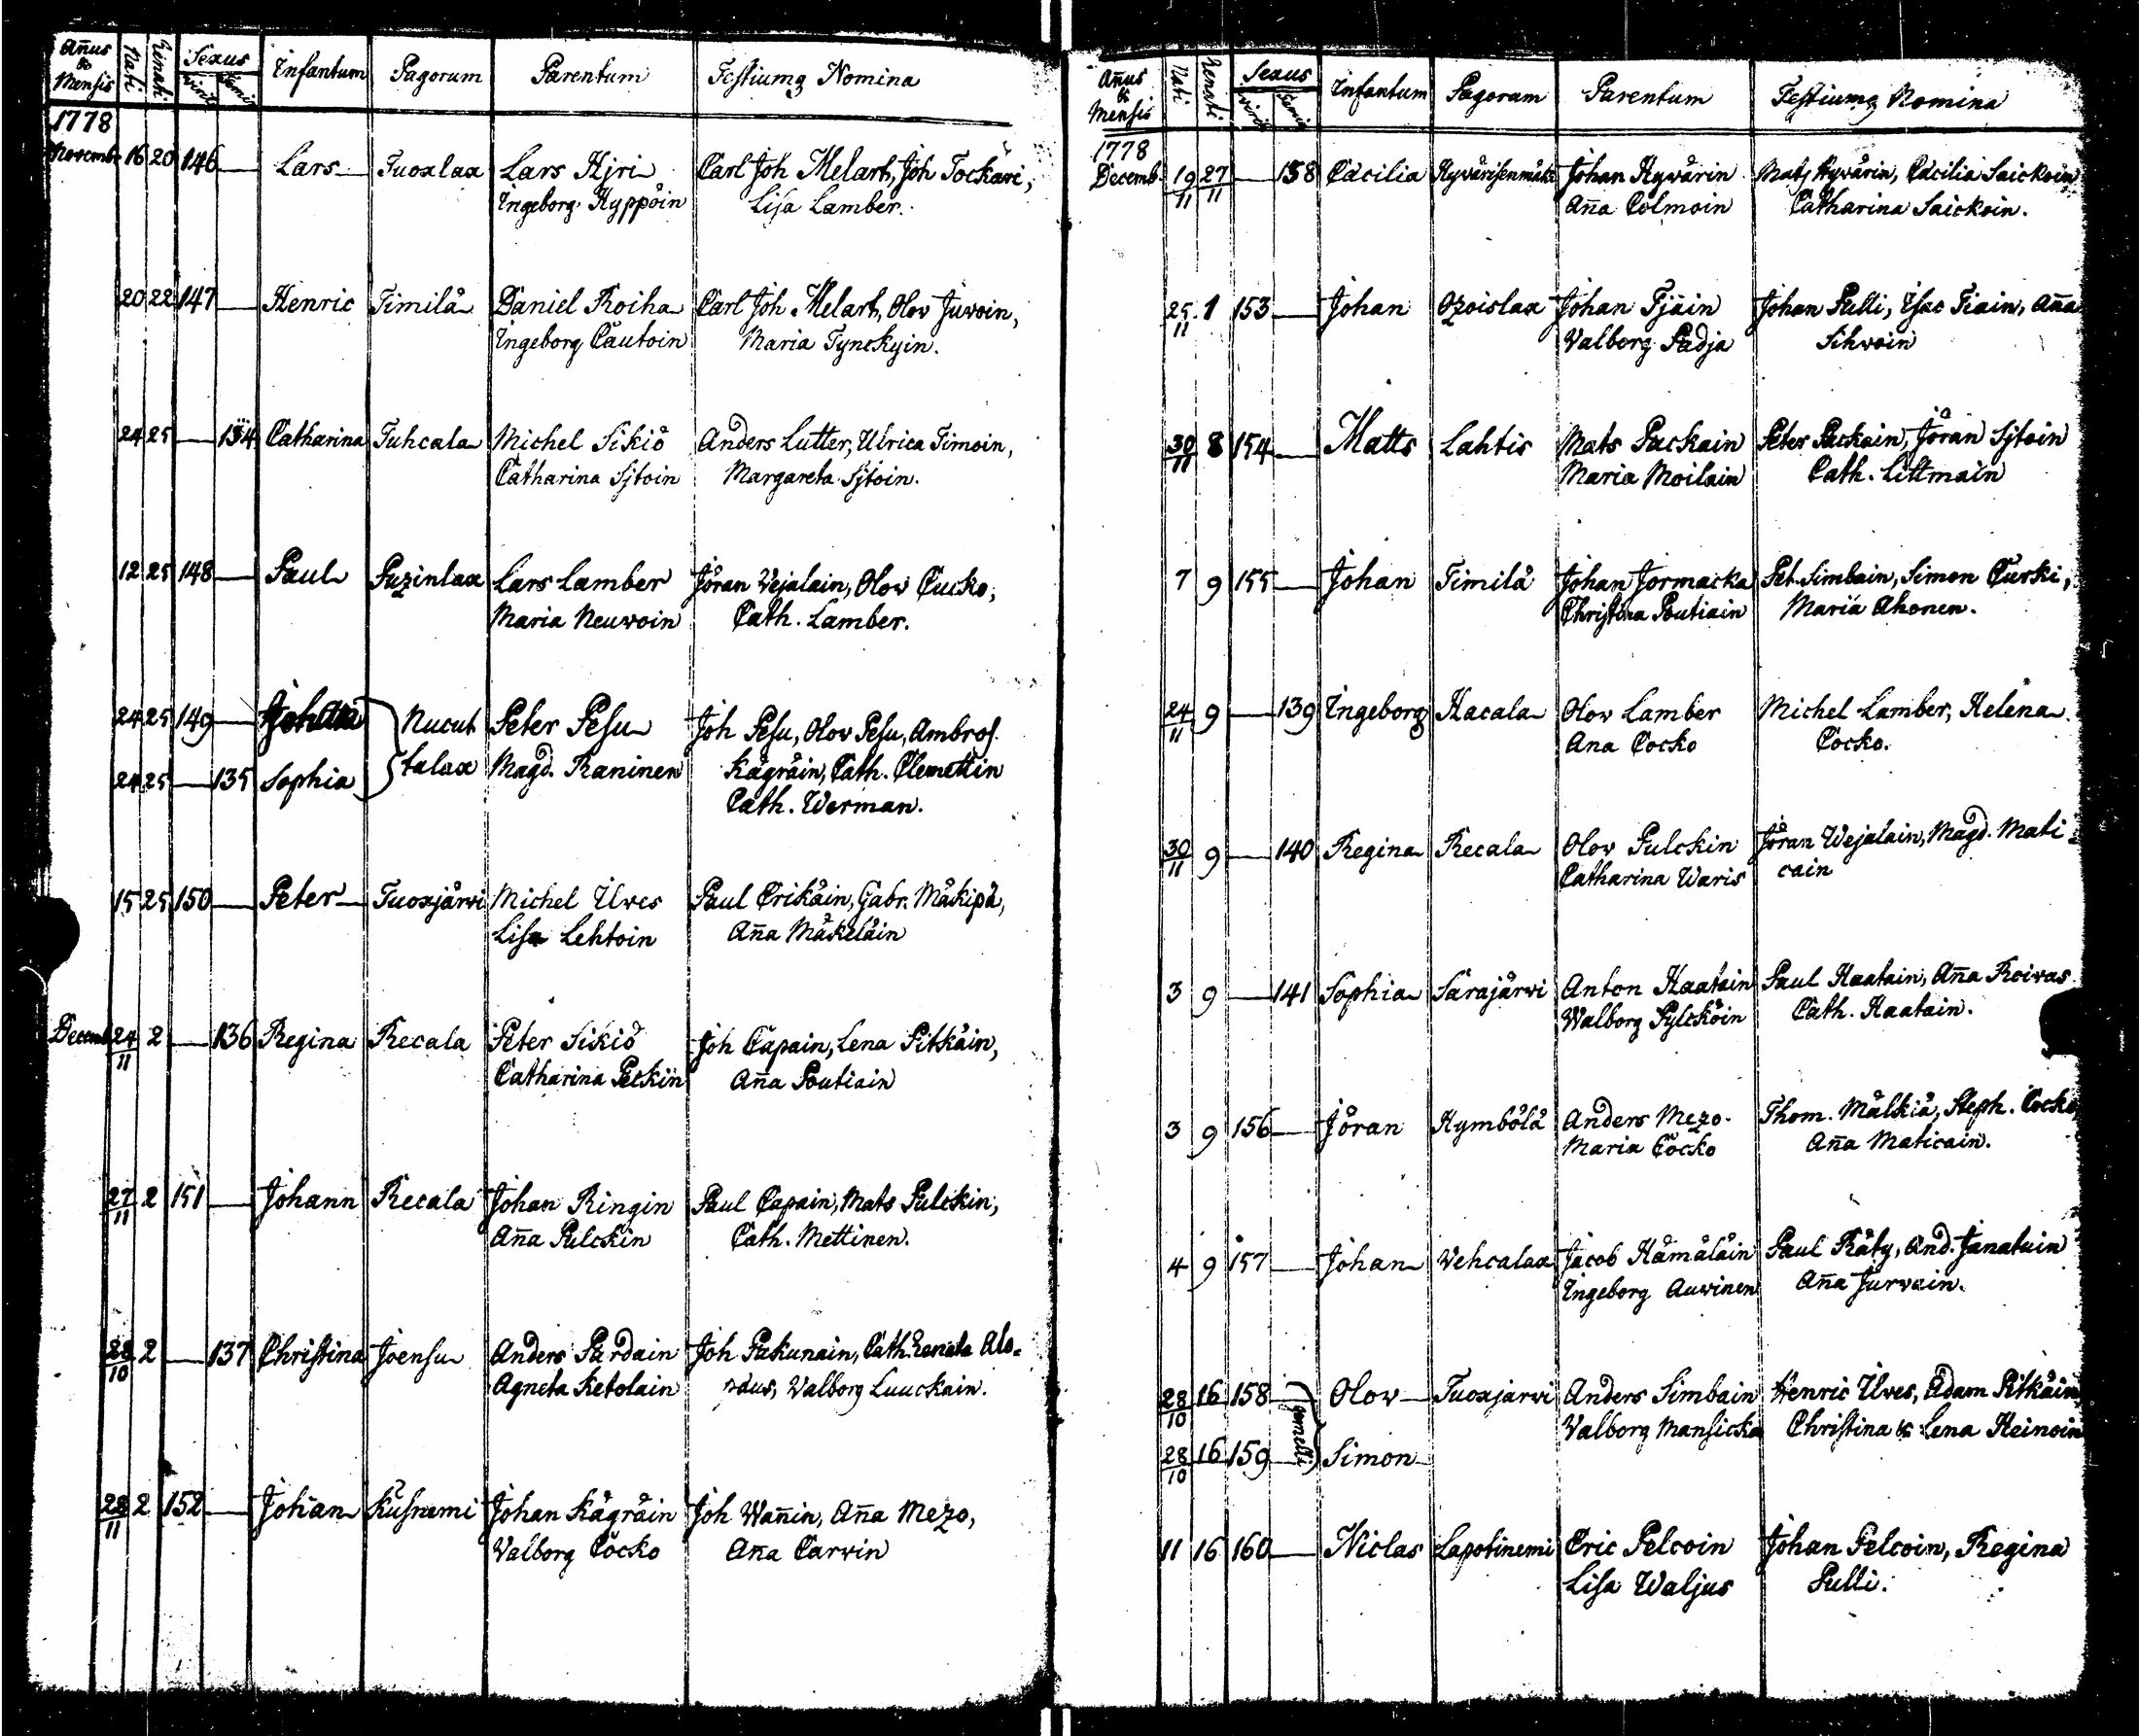 Añus & Mensis Nati Renati Sexus viril femin Infantum Pagorum Parentum Testiumq Nomina
1778
Novembr 16 20 146 — Lars Tuoxlax Lars Hjri Carl Joh Melart, Joh Tockari,
Ingeborg Hyppöin Lisa Lamber.
20 22 147 — Henric Timilä Daniel Roiha Carl Joh Melart, Olov Juvoin,
Ingeborg Cautoin Maria Tynckyin.
24 25 — 134 Catharina Tuhcala Michel Sikiö Anders Lutter, Ulrica Timoin,
Catharina Sjtoin Margareta Sjtoin.
12 25 148 — Paul Puzinlax Lars Lamber Jöran Vejalain, Olov Cucko,
Maria Neuvoin Cath. Lamber.
24 25 149 — Nucut Peter Pesu Joh Pesu, Olov Pesu, Ambros.
24 25 — 135 Sophia talax Magd. Raninen Kägräin, Cath. Clemettin
Cath. Werman.
15 25 150 — Peter Tuoxjärvi Michel Ilves Paul Erikäin, Gabr. Mäkipä,
Lisa Lehtoin Aña Mäkeläin
Decemb 24/11 2 — 136 Regina Recala Peter Sikiö Joh Capain, Lena Pitkäin,
Catharina Peckin Aña Poutiain
27/11 2 151 — Johann Recala Johan Ringin Paul Capain, Mats Pulckin,
Aña Pulckin Cath. Mettinen.
28/10 2 — 137 Christina Joensu Anders Pardain Joh Pakunain, Cath Renata Alo=
Agneta Ketolain pæus, Valborg Luuckain.
28/11 2 152 — Johan Kusnemi Johan Kägräin Joh Wañin, Aña Mezo,
Valborg Cocko Aña Carvin
Añus & Mensis Nati Renati Sexus viril femin Infantum Pagorum Parentum Testiumq Nomina
1778
Decemb. 19/11 27/11 — 138 Cæcilia Hyvärisenmäki Johan Hyvärin Mats Hyvärin, Cæcilia Saickoin
Aña Colmoin Catharina Saickoin.
25/11 1 153 — Johan Ozoislax Johan Tjäin Johan Pulli, Isac Tiain, Aña
Valborg Padja Sihvoin
30/11 8 154 — Matts Lahtis Mats Puckain Peter Puckain, Jöran Sjtoin
Maria Moilain Cath. Littmain
7 9 155 — Johan Timilä Johan Jormacka Pet. Simbain, Simon Curki,
Christina Poutiain Maria Ahonen.
24/11 9 — 139 Ingeborg Hacala Olov Lamber Michel Lamber, Helena
Ana Cocko Cocko.
30/11 9 — 140 Regina Recala Olov Pulckin Jöran Wejalain, Magd. Mati
Catharina Waris cain
3 9 — 141 Sophia Särajärvi Anton Haatain Paul Haatain, Aña Roivas
Walborg Pylcköin Cath. Haatain.
3 9 156 — Jöran Hymbölä Anders Mezo Thom. Mälkiä, Steph. Cocko
Maria Cocko Aña Maticain.
4 9 157 — Johan Vehcalax Jacob Hämäläin Paul Räty, And. Janatuin
Ingeborg Auvinen Aña Jurvain.
28/10 16 158 — Olov — Tuoxjarvi Anders Simbain Henric Ilves, Adam Pitkäin
gemelli Valborg Mansicka Christina & Lena Heinoin
28/10 16 159 — Simon
11 16 160 — Niclas Lapotinemi Eric Pelcoin Johan Pelcoin, Regina
Lisa Waljus Pulli.